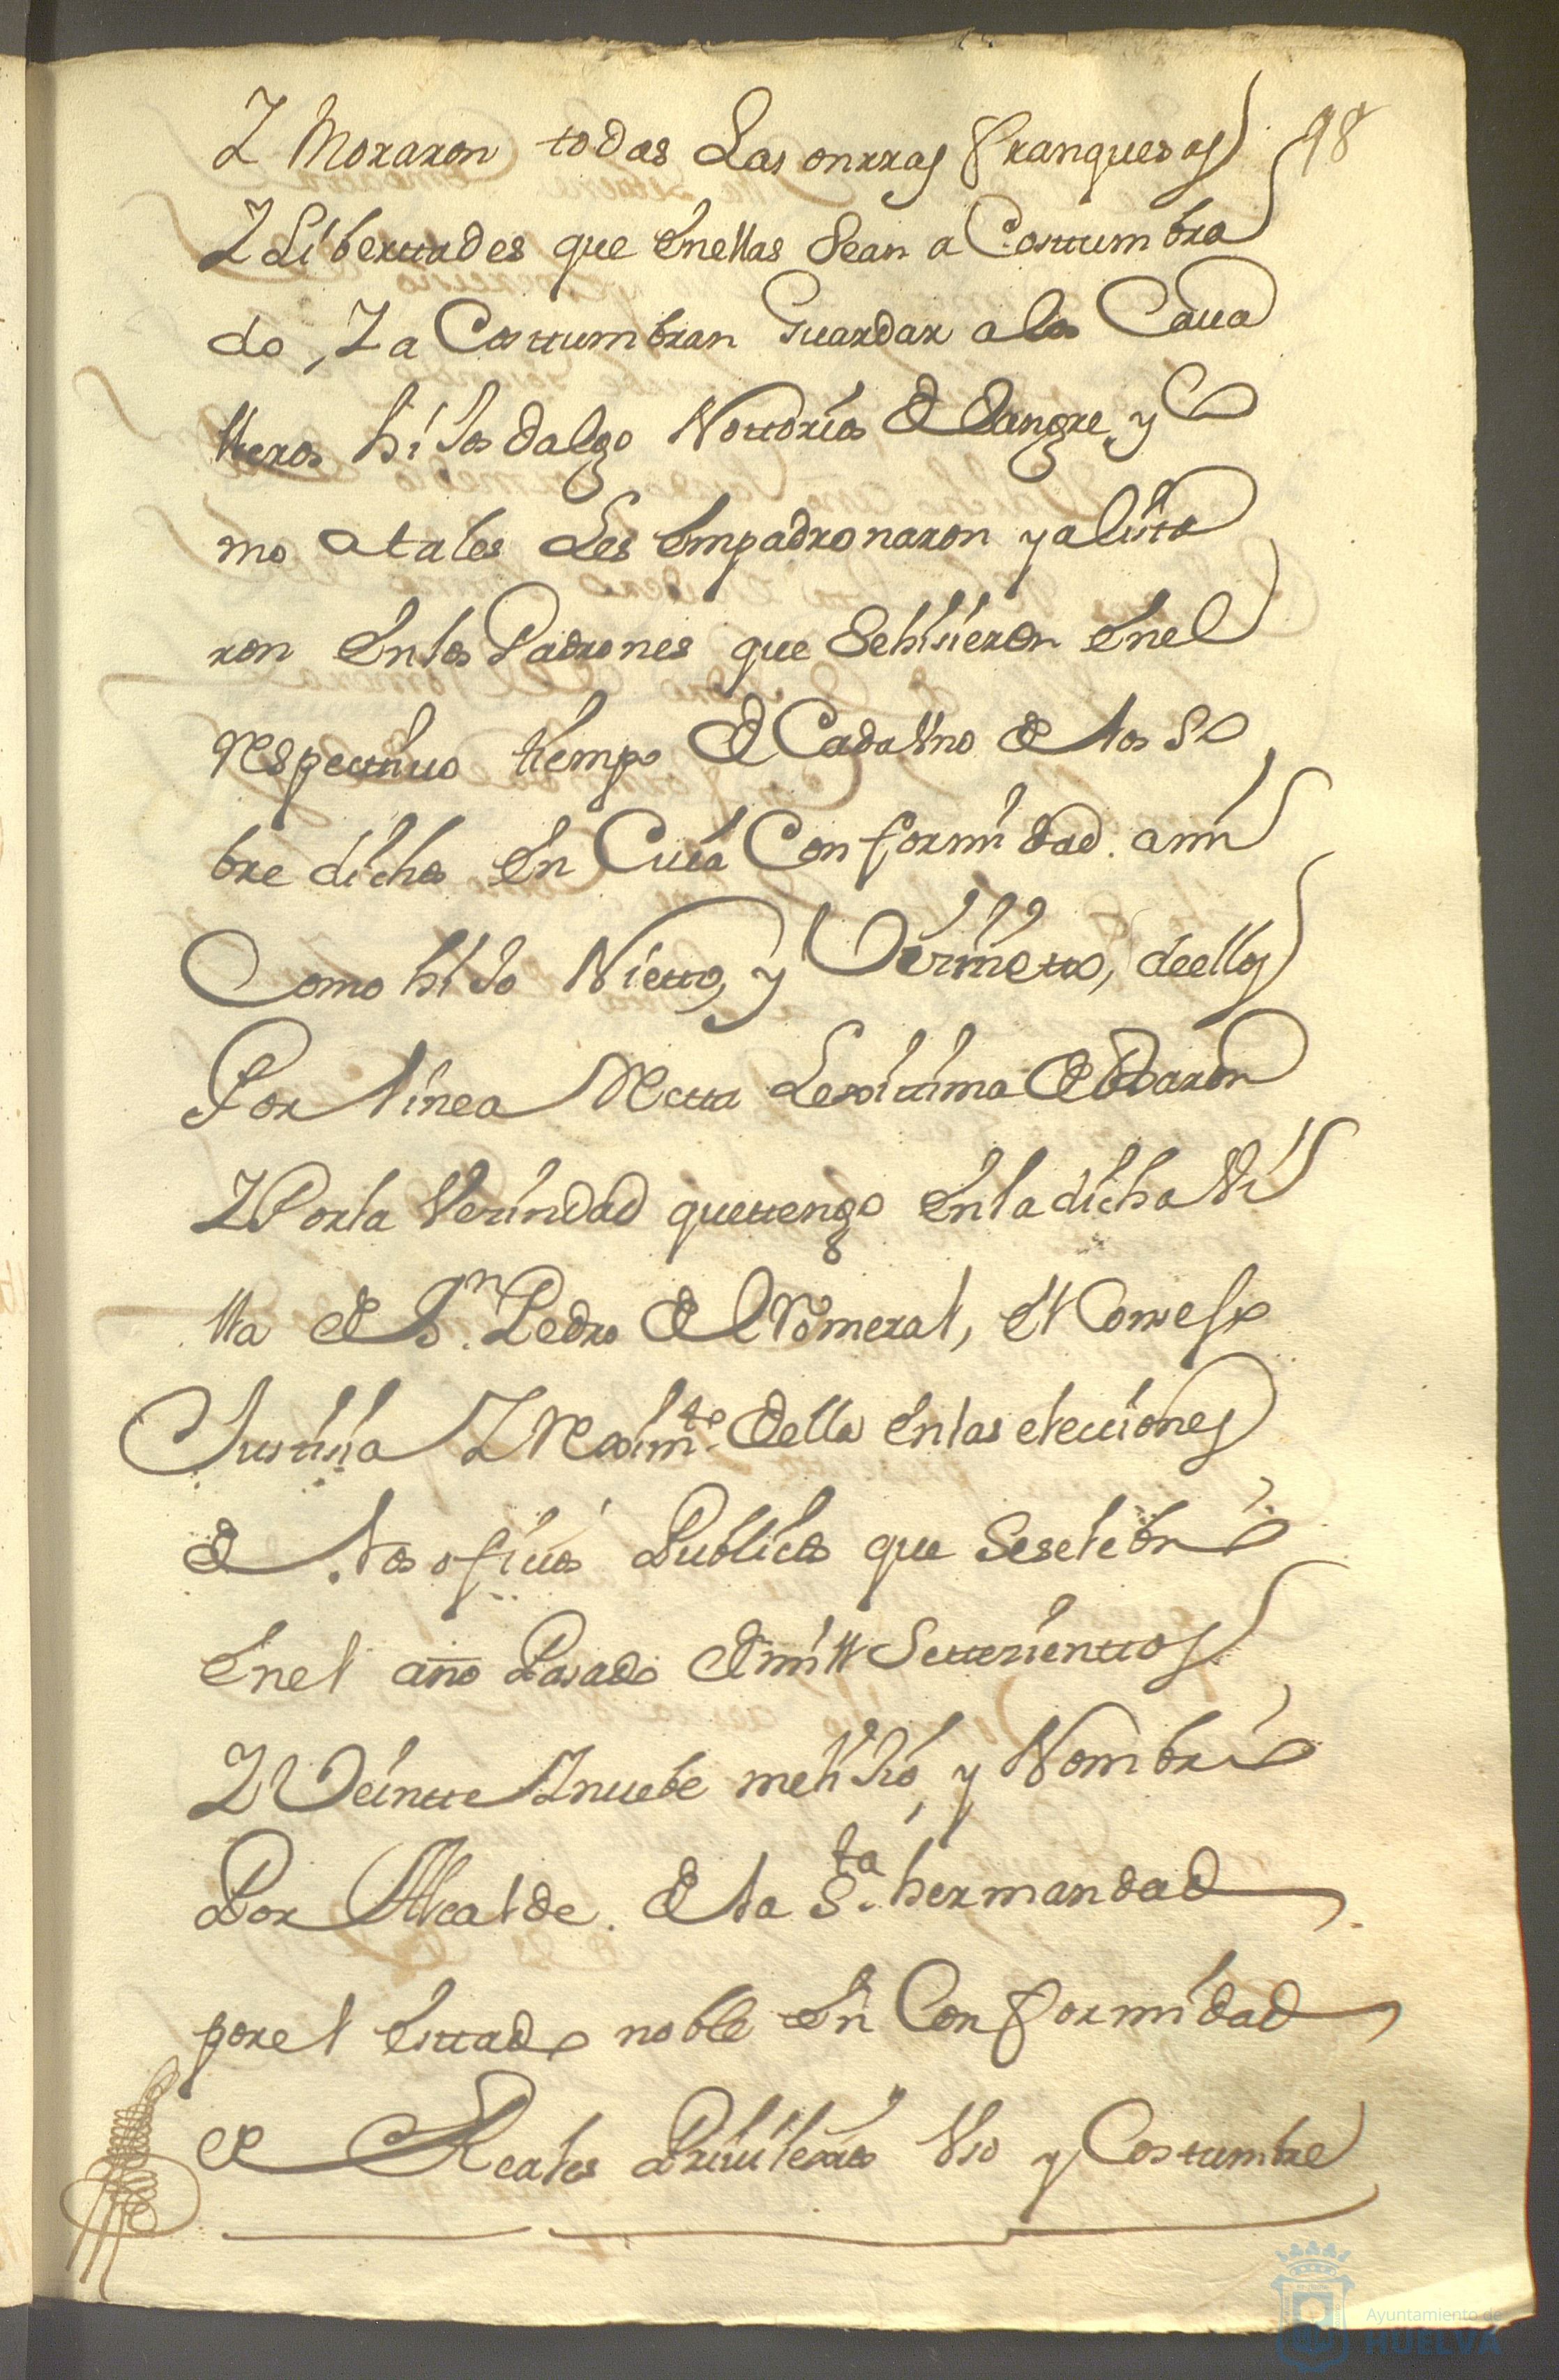 98
Y Moraron todas Las onrras franquesas
Y Liberttades que enellas sean a Costtumbra
do, Y a Costtumbran Guardar a los Caua
lleros hiJos dalgo Nottorios de Sangre, y Co
mo a tales Les empadronaron y alista
ron en los Padrones que Sehisieron enel
respecttiuo tiempo de Cada Vno de los So
bre dichos en Cuia Conformidad. a mi
Como hiJo Nietto, y Visniettto, deellos
Por linea Rectta Lexittima de Varon
Y Porla Vezindad quettengo enla dicha Vi
lla de Sn. Pedro del Romeral, el Consejo
Justtisia Y Reximto. della enlas elecciones
de los oficios Publicos que Seselebro
Enel año Pasado de mill Settezienttos
Y Veintte Ynuebe me eliJio, y Nombro
Por Alcalde. de la Sta. hermandad
porel esttado noble en Conformidad
de Reales Priuilexios Vso y Costumbre
Ayuntamiento de
HUELVA